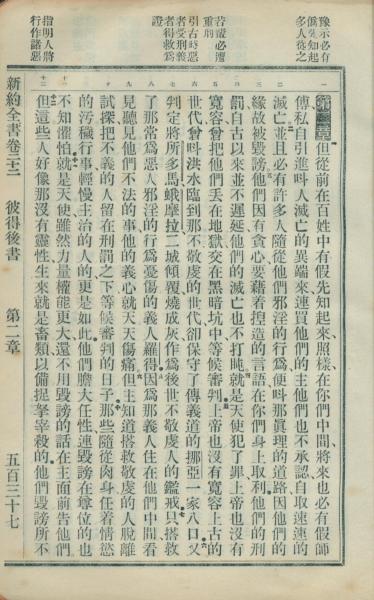 豫示必有
偽先知起
多人從之
若輩必遭
重刑
引古時惡
者受刑義
者得救為
證
指明人將
行作諸惡
第二章 但從前在百姓中有假先知起來照樣在你們中間將來也必有假師
傳私自引進呌人滅亡的異端來連買他們的主他們也不承認自取速速的
滅亡並且必有許多人隨從他們邪淫的行為便呌那眞理的道路因他們的
緣故被毀謗他們因有貪心要藉着捏造的言語在你們身上取利他們的刑
罰自古以來並不遲延他們的滅亡也不打盹就是天使犯了罪上帝也沒有
寬容曾把他們丟在地獄交在黑暗坑中等候審判上帝也沒有寬容上古的
世代曾呌洪水臨到那不敬虔的世代卻保守了傳義道的挪亞一家八口又
判定將所多馬蛾摩拉二城傾覆燒成灰作為後世不敬虔人的鑑戒只搭救
了那常為惡人邪淫的行為憂傷的義人羅得因為那義人住在他們中間看
見聽見他們不法的事他的義心就天天傷痛但主知道搭救敬虔的人脫離
試探把不義的人留在刑罰之下等候審判的日子那些隨從肉身任着情慾
的汚穢行事輕慢主治的人的更是如此他們膽大任性連毀謗在尊位的也
不知懼怕就是天使雖然力量權能更大還不用毀謗的話在主面前告他們
但這些人好像那沒有靈性生來就是畜類以備捉拏宰殺的他們毀謗所不
新約全書卷二十二 彼得後書 第二章 五百三十七